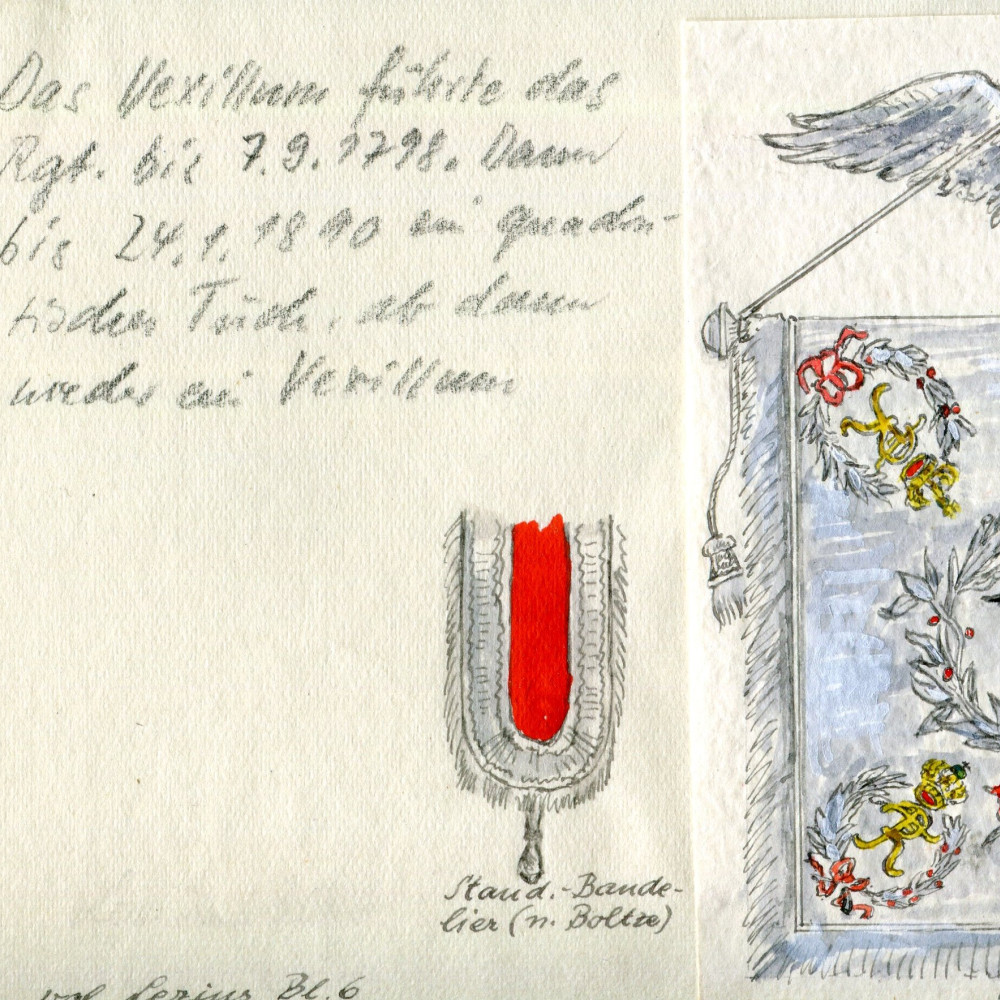 Das Vexillum führte das
Rgt. bis 7.9.1798. Dann
bis 24.1.1810 ein quadra-
tisches Tuch, ab dann
wieder ein Vexillum
Stand.-Bande-
lier (n. Boltze)
vgl. Lezius Bl. 6